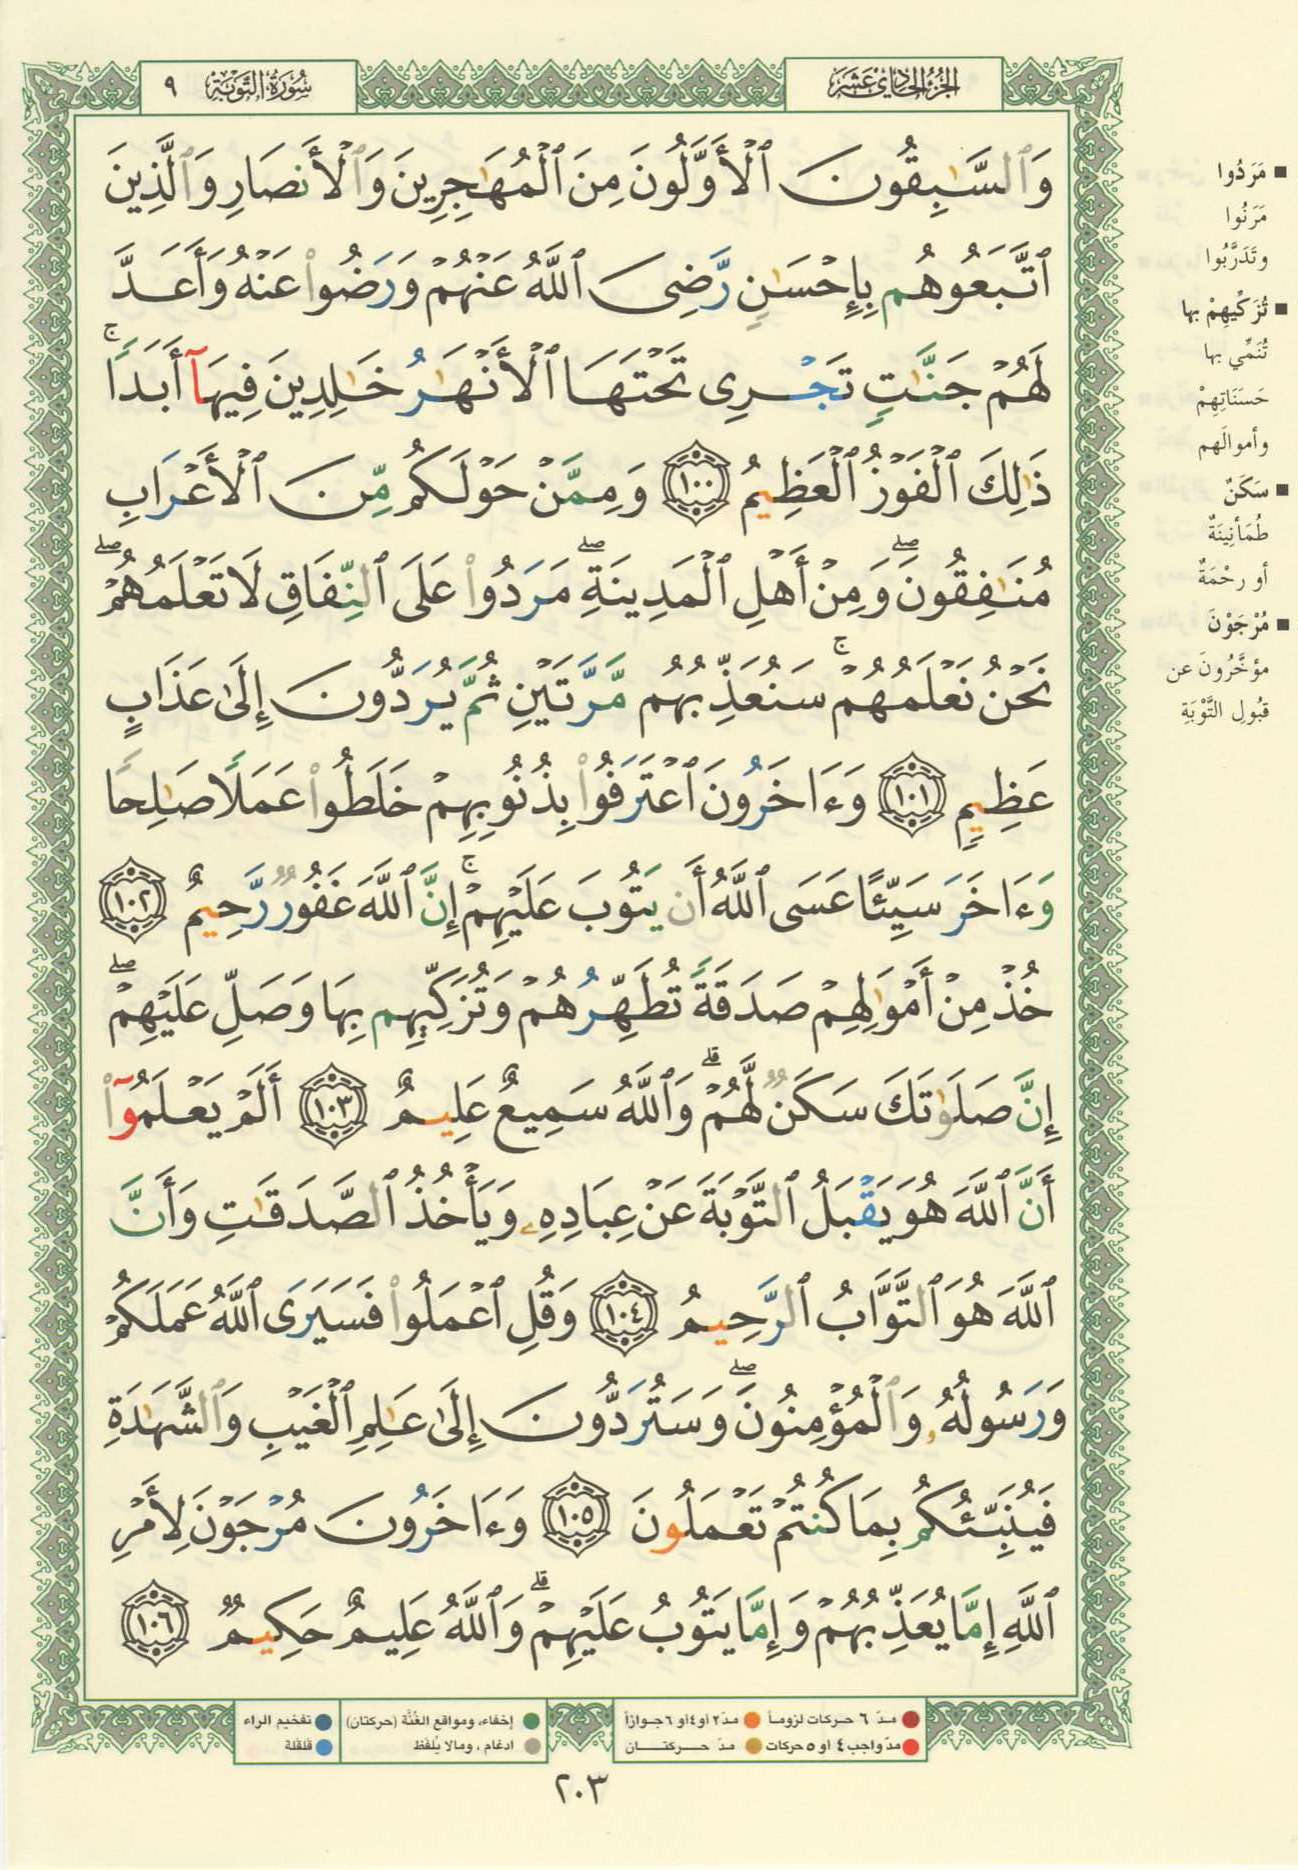 الجزء الحادي عشر
سورة التوبة ٩
وَٱلسَّٰبِقُونَ ٱلْأَوَّلُونَ مِنَ ٱلْمُهَٰجِرِينَ وَٱلْأَنصَارِ وَٱلَّذِينَ
ٱتَّبَعُوهُم بِإِحْسَٰنٍ رَّضِىَ ٱللَّهُ عَنْهُمْ وَرَضُوا۟ عَنْهُ وَأَعَدَّ
لَهُمْ جَنَّٰتٍ تَجْرِى تَحْتَهَا ٱلْأَنْهَٰرُ خَٰلِدِينَ فِيهَآ أَبَدًا ۚ
ذَٰلِكَ ٱلْفَوْزُ ٱلْعَظِيمُ ١٠٠ وَمِمَّنْ حَوْلَكُم مِّنَ ٱلْأَعْرَابِ
مُنَٰفِقُونَ ۖ وَمِنْ أَهْلِ ٱلْمَدِينَةِ ۖ مَرَدُوا۟ عَلَى ٱلنِّفَاقِ لَا تَعْلَمُهُمْ ۖ
نَحْنُ نَعْلَمُهُمْ ۚ سَنُعَذِّبُهُم مَّرَّتَيْنِ ثُمَّ يُرَدُّونَ إِلَىٰ عَذَابٍ
عَظِيمٍ ١٠١ وَءَاخَرُونَ ٱعْتَرَفُوا۟ بِذُنُوبِهِمْ خَلَطُوا۟ عَمَلًا صَٰلِحًا
وَءَاخَرَ سَيِّئًا عَسَى ٱللَّهُ أَن يَتُوبَ عَلَيْهِمْ ۚ إِنَّ ٱللَّهَ غَفُورٌ رَّحِيمٌ ١٠٢
خُذْ مِنْ أَمْوَٰلِهِمْ صَدَقَةً تُطَهِّرُهُمْ وَتُزَكِّيهِم بِهَا وَصَلِّ عَلَيْهِمْ ۖ
إِنَّ صَلَوٰتَكَ سَكَنٌ لَّهُمْ ۗ وَٱللَّهُ سَمِيعٌ عَلِيمٌ ١٠٣ أَلَمْ يَعْلَمُوٓا۟
أَنَّ ٱللَّهَ هُوَ يَقْبَلُ ٱلتَّوْبَةَ عَنْ عِبَادِهِۦ وَيَأْخُذُ ٱلصَّدَقَٰتِ وَأَنَّ
ٱللَّهَ هُوَ ٱلتَّوَّابُ ٱلرَّحِيمُ ١٠٤ وَقُلِ ٱعْمَلُوا۟ فَسَيَرَى ٱللَّهُ عَمَلَكُمْ
وَرَسُولُهُۥ وَٱلْمُؤْمِنُونَ ۖ وَسَتُرَدُّونَ إِلَىٰ عَٰلِمِ ٱلْغَيْبِ وَٱلشَّهَٰدَةِ
فَيُنَبِّئُكُم بِمَا كُنتُمْ تَعْمَلُونَ ١٠٥ وَءَاخَرُونَ مُرْجَوْنَ لِأَمْرِ
ٱللَّهِ إِمَّا يُعَذِّبُهُمْ وَإِمَّا يَتُوبُ عَلَيْهِمْ ۗ وَٱللَّهُ عَلِيمٌ حَكِيمٌ ١٠٦
■ مَرَدُوا
مَرَنُوا
وتَدَرَّبُوا
■ تُزَكِّيهِمْ بها
تُنَمِّي بها
حَسَنَاتِهِمْ
وأموالَهم
■ سَكَنٌ
طُمَأنِينَةٌ
أو رحْمَةٌ
■ مُرْجَوْنَ
مؤخَّرُونَ عن
قبُولِ التَّوْبَةِ
مدّ ٦ حركات لزوماً
مدّ٢ أو٤أو ٦جوازاً
مدّ واجب ٤ أو ٥ حركات
مدّ حركتان
إخفاء، ومواقع الغُنَّة (حركتان)
ادغام ، ومالا يُلفَظ
تفخيم الراء
قلقلة
٢٠٣